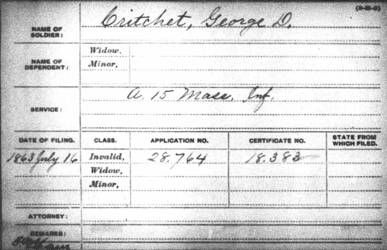 (3-2-3)
NAME OF SOLDIER: Critchet, George D.
NAME OF DEPENDENT: Widow,
Minor,
SERVICE: A. 15 Mass. Inf.
DATE OF FILING. CLASS. APPLICATION NO. CERTIFICATE NO. STATE FROM WHICH FILED.
1863 July 16 Invalid, 28.764 18.383
Widow,
Minor,
ATTORNEY:
REMARKS: